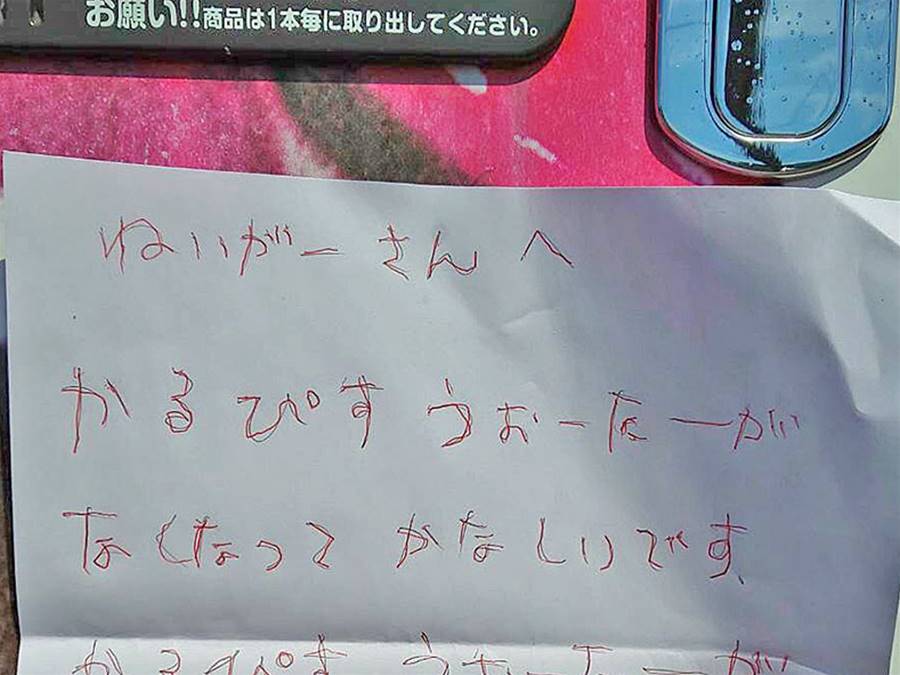 お願い!!商品は1本毎に取り出してください。
ねいがーさんへ
かるぴすうぉーたーが
なくなってかなしいです。
かるぴすうぉーたーが